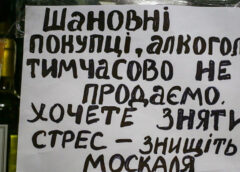 ШАНОВНІ
ПОКУПЦІ, АЛКОГОЛ
ТИМЧАСОВО НЕ
ПРОДАЄМО.
ХОЧЕТЕ ЗНЯТИ
СТРЕС – ЗНИЩІТЬ
МОСКАЛЯ